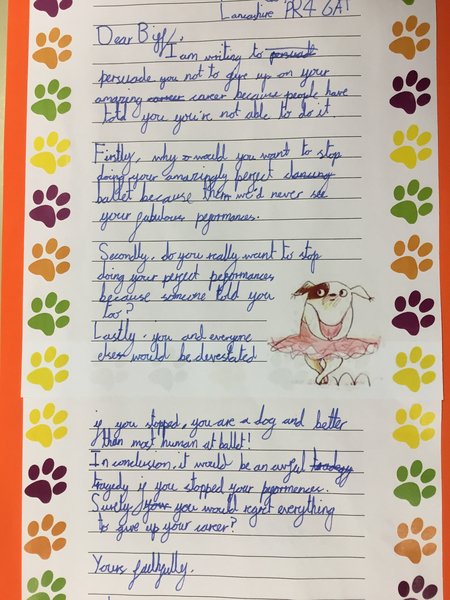 Lancashire PR4 6AT
Dear Biff,
I am writing to persuade
persuade you not to give up on your
amazing career career because people have
told you you're not able to do it.
Firstly, why would you want to stop
doing your amazingly perfect dancing
ballet because then we'd never see
your fabulous peformances.
Secondly, do you really want to stop
doing your perfect peformances
because someone told you
too?
Lastly, you and everyone
elses would be devestated
if you stopped, you are a dog and better
than most human at ballet!
In conclusion, it would be an awful
tragedy if you stopped your pyormences.
Surely, you would regret everything
to give up your career?
Yours faithfully,